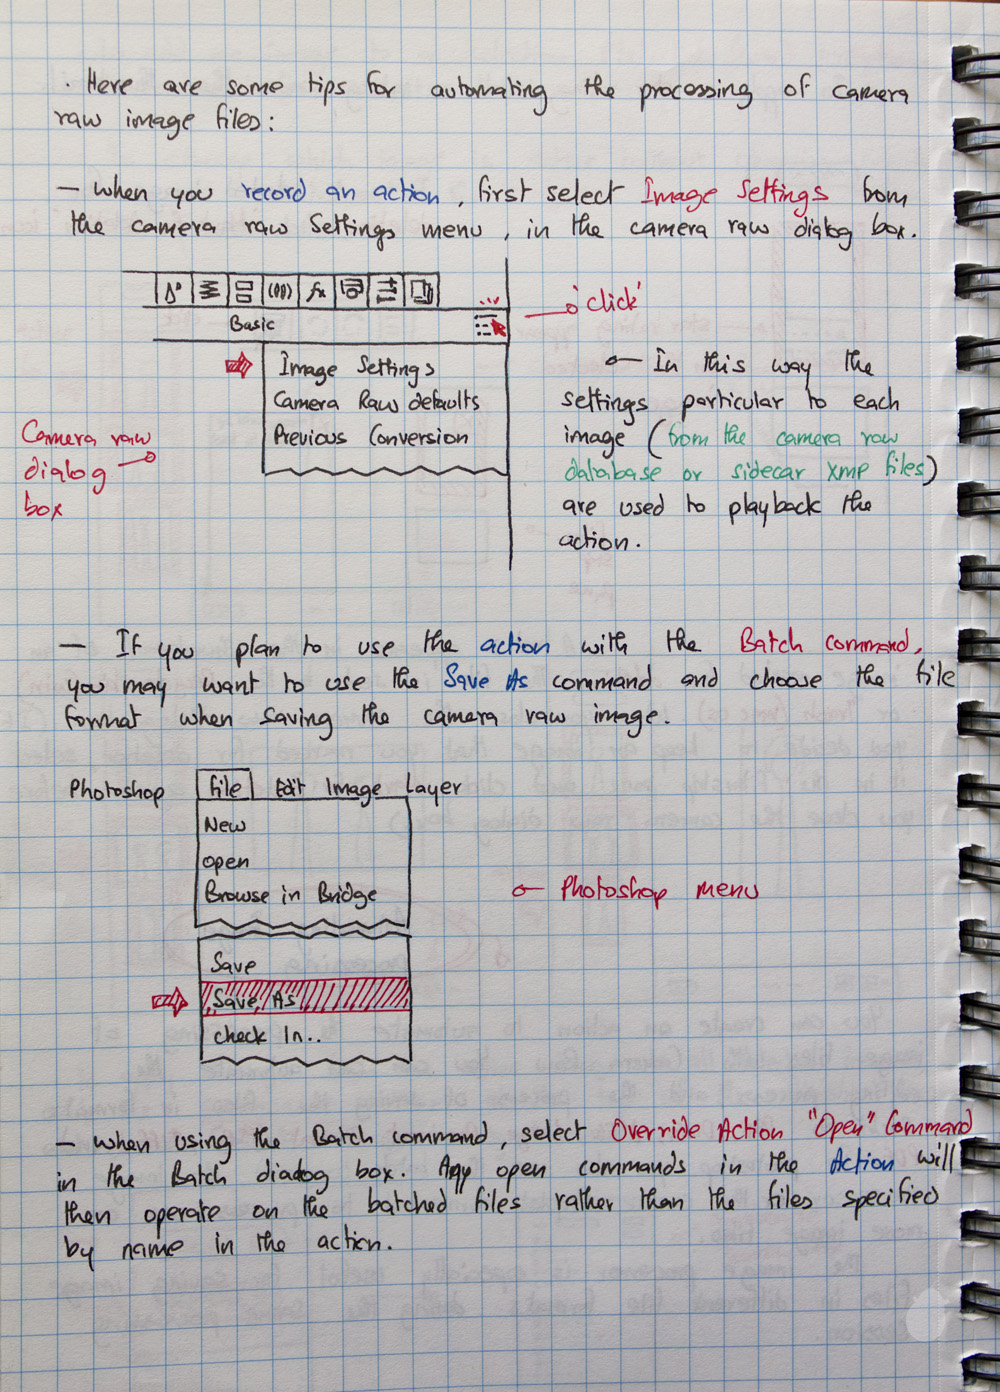 . Here are some tips for automating the processing of camera
raw image files:
— When you record an action, first select Image Settings from
the camera raw Settings menu, in the camera raw dialog box.
fx
'click'
Basic
Image Settings
Camera Raw defaults
Previous Conversion
Camera raw
dialog
box
— In this way the
settings particular to each
image (from the camera raw
database or sidecar xmp files)
are used to playback the
action.
— If you plan to use the action with the Batch command,
you may want to use the Save As command and choose the file
format when saving the camera raw image.
Photoshop File Edit Image Layer
New
Open
Browse in Bridge
Photoshop menu
Save
Save As
Check In..
— When using the Batch command, select Override Action "Open" Command
in the Batch diadog box. Any open commands in the Action will
then operate on the batched files rather than the files specified
by name in the action.